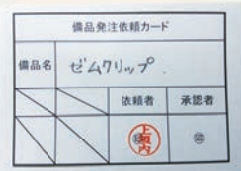 備品発注依頼カード
備品名 ゼムクリップ
依頼者 承認者
㊞ ㊞